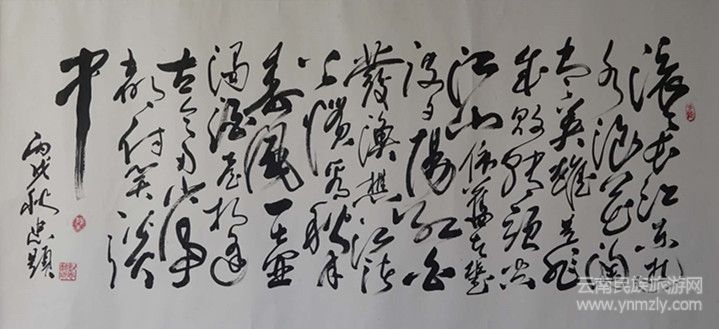 滚々长江东逝
水浪花淘
尽英雄是非
成败转头空
江山依旧在几
度夕阳红白
发渔樵江渚
上惯看秋月
春风一壶
浊酒喜相逢
古今多少事
都付笑谈
中
丙戌秋忠题
云南民族旅游网
www.ynmzly.com